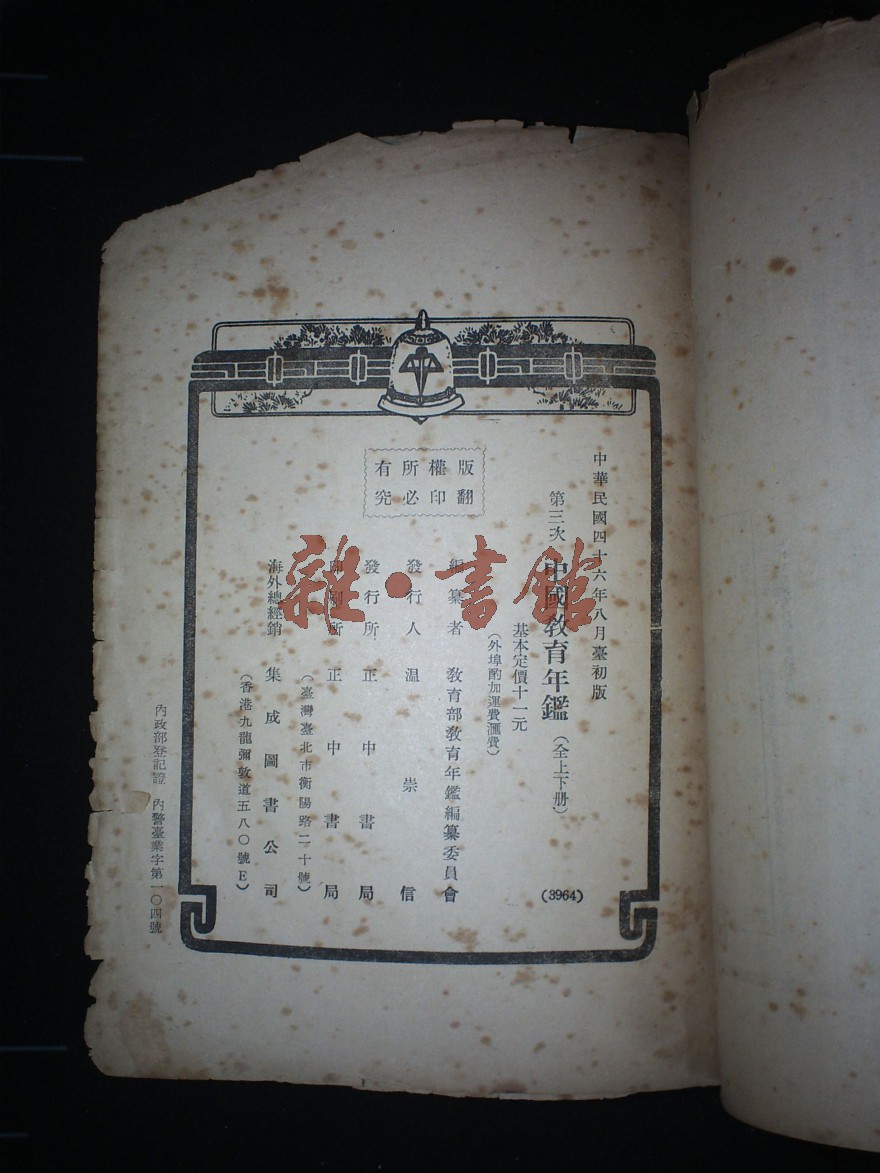 中華民國四十六年八月臺初版
第三次 中國教育年鑑(全上下册)(3964)
基本定價十一元
(外埠酌加運費滙費)
版權所有
翻印必究
編纂者 教育部教育年鑑編纂委員會
發行人 温崇信
發行所 正中書局
印刷所 正中書局
(臺灣臺北市衡陽路二十號)
海外總經銷 集成圖書公司
(香港九龍彌敦道五八〇號E)
內政部登記證 內警臺業字第一〇四號
雜·書館